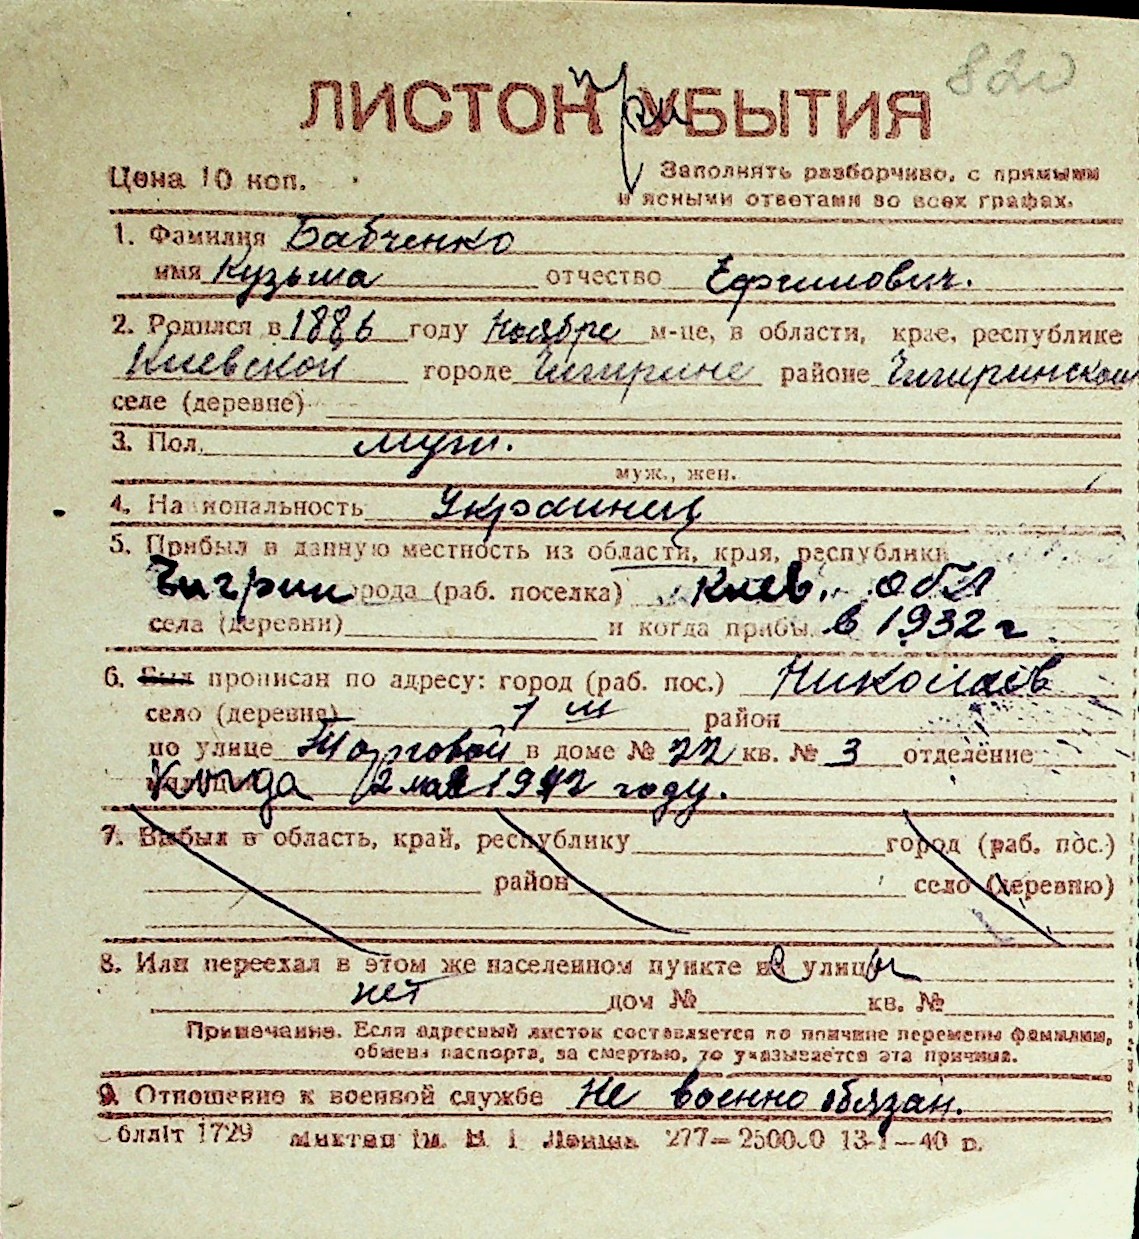 820
ЛИСТОК при БЫТИЯ
Цена 10 коп.
Заполнять разборчиво, с прямыми
и ясными ответами во всех графах.
1. Фамилия Бабченко
имя Кузьма отчество Ефимович.
2. Родился в 1886 году Ноябре м-це, в области, крае, республике
Киевской городе Чигирине районе Чигиринском
селе (деревне)
3. Пол. муж.
муж., жен.
4. Национальность Украинец
5. Прибыл в данную местность из области, края, республики
Чигрин рода (раб. поселка) Киев. обл
села (деревни) и когда прибы. в 1932 г.
6. Был прописан по адресу: город (раб. пос.) Николаев
село (деревня) 1 м район
по улице Торговой в доме № 22 кв. № 3 отделение
Когда 2 мая 1942 году.
7. Выбыл в область, край, республику город (раб. пос.)
район село (деревню)
8. Или переехал в этом же населенном пункте не улицы
нет дом № кв. №
Примечание. Если адресный листок составляется по причине перемены фамилии,
обмена паспорта, за смертью, то указывается эта причина.
9. Отношение к военной службе Не военно обязан.
блліт 1729 277—250000 13-I—40 р.